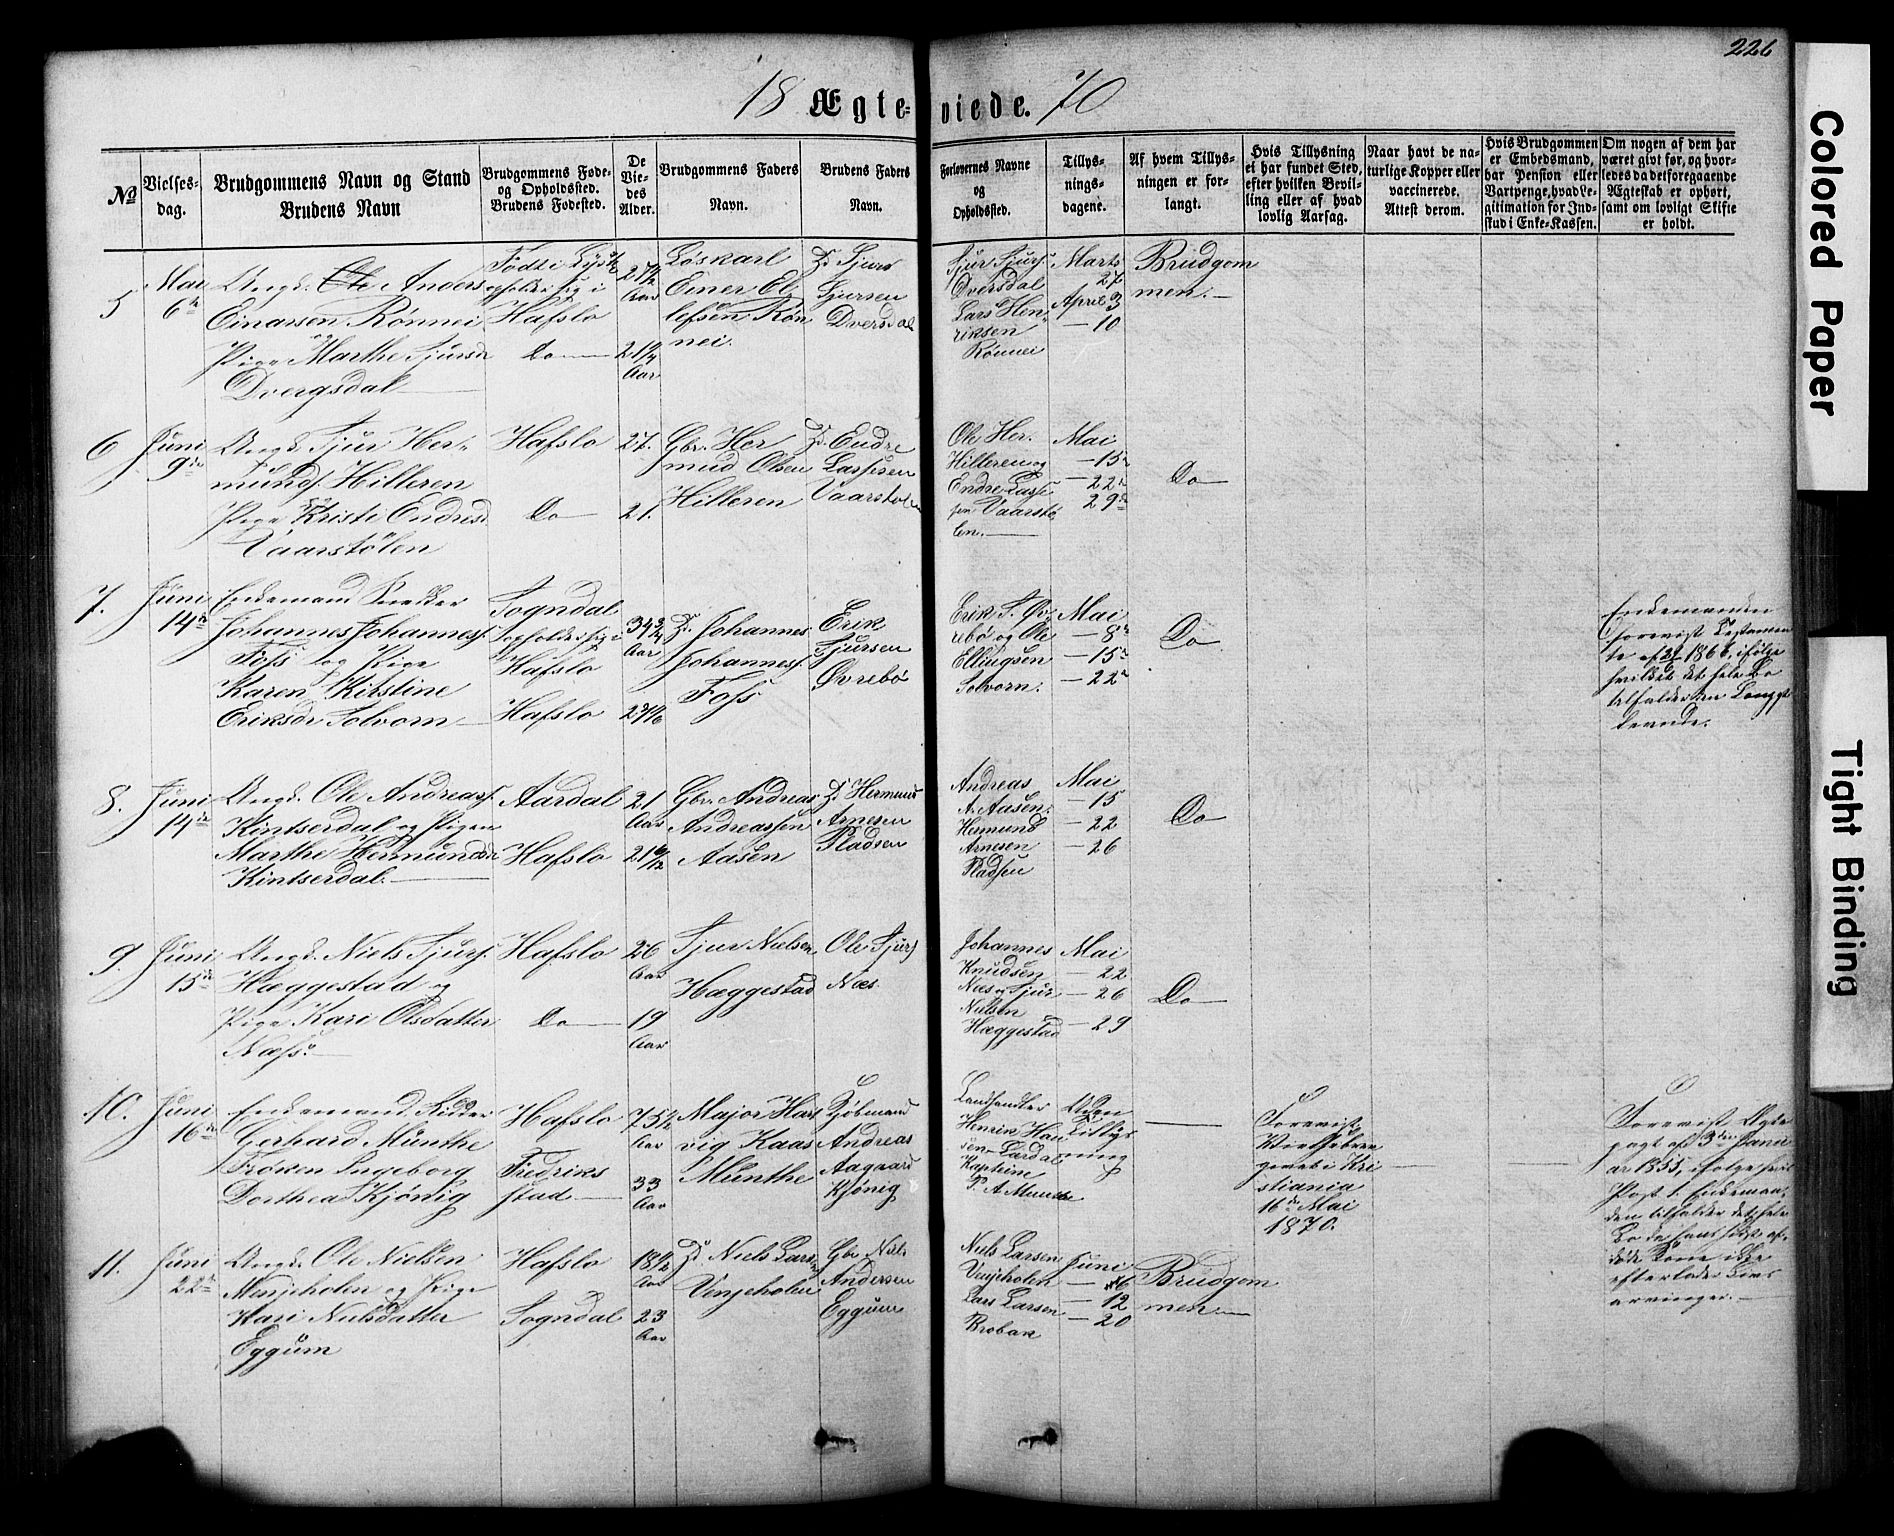 226
18 Ægte-viede. 70
№
Vielses-
dag.
Brudgommens Navn og Stand
Brudens Navn
Brudgommens Føde-
og Opholdssted.
Brudens Fødested.
De
Vie-
des
Alder.
Brudgommens Faders
Navn.
Brudens Faders
Navn.
Forlovernes Navne
og
Opholdssted.
Tillys-
nings-
dagene.
Af hvem Tillys-
ningen er for-
langt.
Hvis Tillysning
ei har fundet Sted,
efter hvilken Bevil-
ling eller af hvad
lovlig Aarsag.
Naar havt de na-
turlige Kopper eller
vaccinerede.
Attest derom.
Hvis Brudgommen
er Embedsmand,
har Pension eller
Vartpenge, hvad Le-
gitimation for Ind-
skud i Enke-Kassen.
Om nogen af dem har
været givt før, og hvor-
ledes da det foregaaende
Ægteskab er ophørt,
samt om lovligt Skifte
er holdt.
5
Mai
6te
Ungd. Ole Anders
Einarsen Rönnei
og
Pige Marthe Sjursd
Dvergsdal
Hafslo
Do
Aar
Aar
Löskarl
Einer El
lefsen Rön
nei.
Sjurs
Sjursen
Dversdal
Sjur Sjurs.
Dversdal
Lars Hen-
riksen
Rönnei
Marts
27
April 3
— 10
Brudgom
men.
6
Juni
9de
Ungd. Sjur Her-
munds. Hilleren
Pige Kristi Endresd
Vaarstölen
Hafslo
Do
27.
21.
Gbr. Her
mud Olsen
Hilleren
Endre
Lassesen
Vaarstolen
Ole Her.
Hilleren og
Endre Lasse
sen Vaarstö
len.
Mai
— 15
— 22
29
Do
7.
Juni
14de
Enkemand Snedker
Johannes Johannes.
Foss og Pige
Karen Kirstine
Eriksdr Solvorn
Sogndal
opholder sig i
Hafslo
Hafslo
34 3/4
Aar
Johannes
Johannes.
Foss
Erik
Sjursen
Øvrebö
Erik S. Øv
rebö og Ole
Ellingsen
Solvorn.
Mai
— 8
— 15
— 22
Do
Enkemanden
forevist Testamen
hvilket det hele Bo
tilfalder den Længst
levende.
8.
Juni
14de
Ungd. Ole Andreass.
Kintserdal og Pigen
Marthe Hermundsdr
Kintserdal.
Aardal
Hafslo
21
Aar
Gbr. Andreas
Andreassen
Aasen
Hermund
Arnesen
Pladsen
Andreas
A. Aasen
Hermund
Arnesen
Pladsen
Mai
— 15
— 22
— 26
Do
9.
Juni
15de
Ungd. Niels Sjurs.
Hæggestad og
Pige Kari Olsdatter
Næss.
Hafslo
Do
26
Aar
19
Aar
Sjur Nielsen
Hæggestad
Ole Sjurs
Næs
Johannes
Knudsen
Næs og Sjur
Nielsen
Hæggestad
Mai
— 22
— 26
— 29
Do
10.
Juni
16de
Enkemand Ridder
Gerhard Munthe
Fröken Ingeborg
Dorthea Kjönig
Hafslo
Fredriks
stad
75 1/2
Aar
33
Aar
Major Hart
vig Kaas
Munthe
Kjöbmand
Andreas
Aagaard
Kjönig
Landhandler
Henrik Han
sen Lardal
Kaptein
P. A. Munthe
Uden
Tillys
ning
Forevist
givet i Kri
stiania
16de Mai
1870.
Forevist Ægte
pagt af 3die Janu
ar 1855, ifølge hvis
Post 1. Enkeman-
den tilfalder det hele
Bo da hans sidst af-
døde Kone ikke
efterlader Livs
arvinger.
11.
Juni
22de
Ungd. Ole Nielsen
Venjeholen og Pige
Kari Nielsdatter
Eggum
Hafslo
Sogndal
18 1/2
Aar
23
Aar
Niels Larsen
Venjeholen
Gbr Niels
Andersen
Eggum
Niels Larsen
Venjeholen
Lars Larsen
Brobak
Juni
— 6
— 12
— 20
Brudgom
men
Colored Paper
Tight Binding